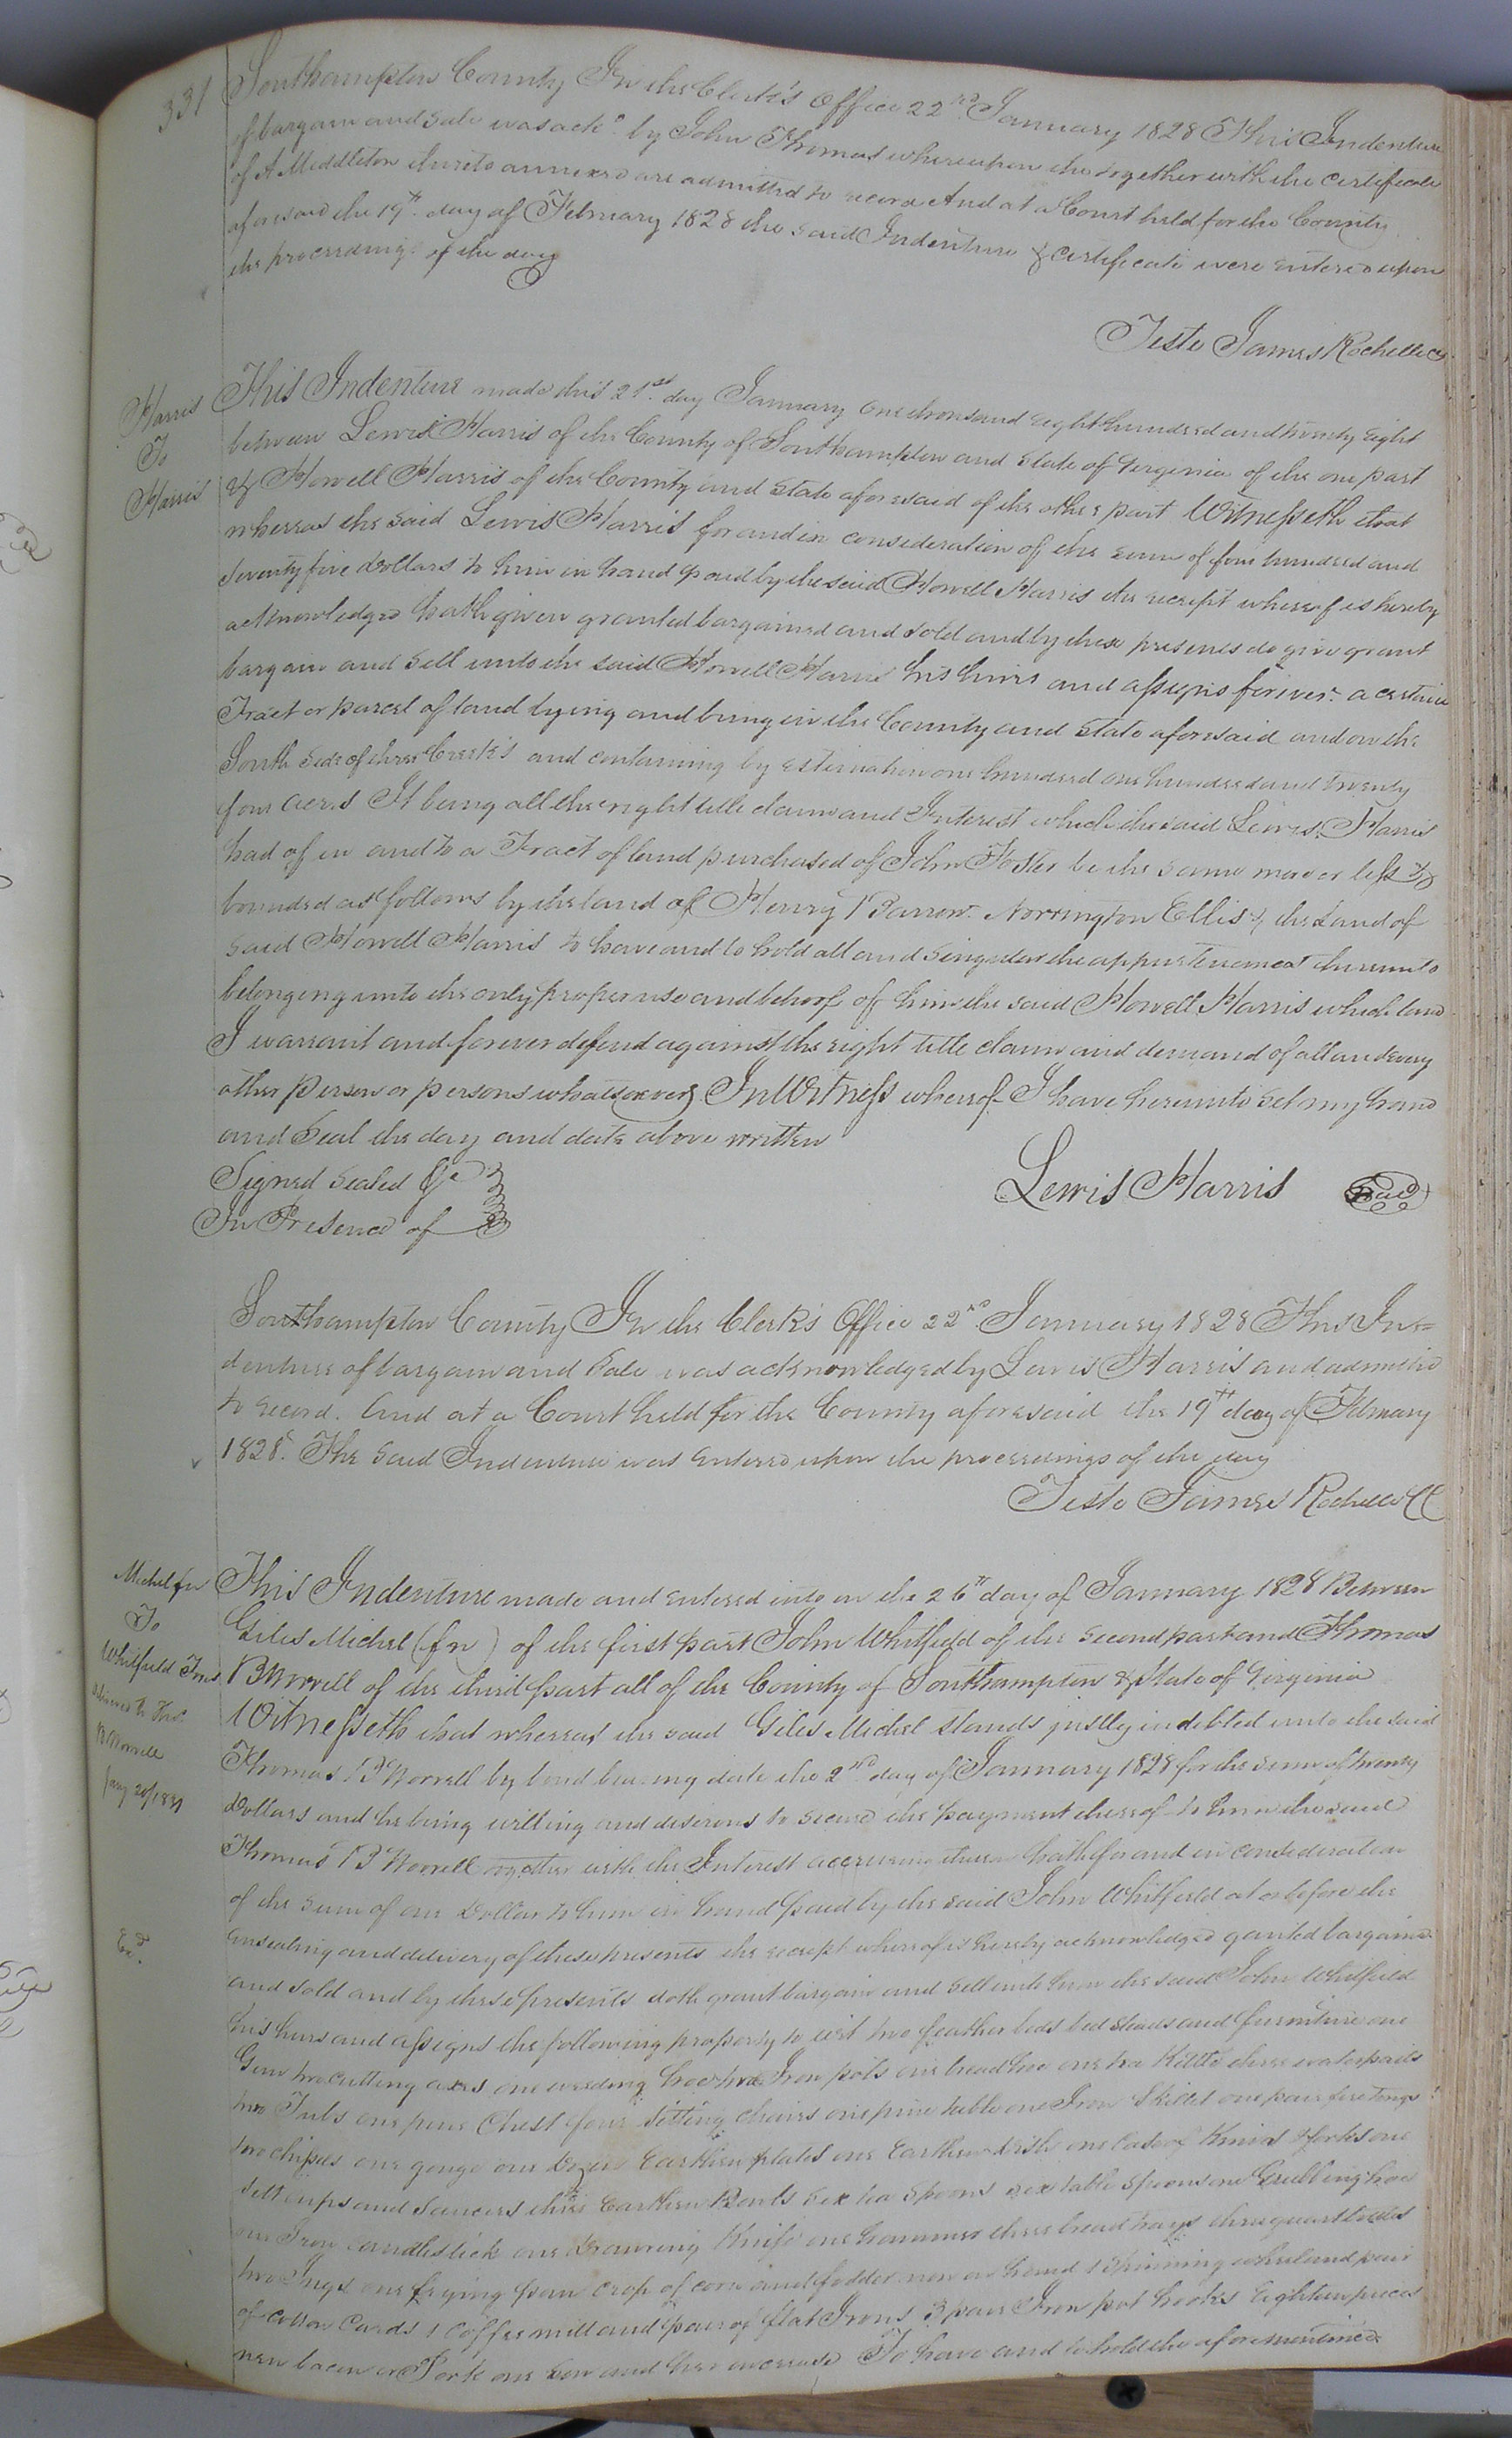 331
Southampton County In the Clerk's Office 22nd January 1828 This Indenture
of bargain and Sale was ackd by John Thomas whereupon the together with the certificate
of A Middleton thereto annexed are admitted to record And at a Court held for the County
aforesaid the 19th day of February 1828 the said Indenture & Certificate were entered upon
the proceedings of the day
Teste James Rochelle C
Harris
To
Harris
This Indenture made this 21st day January one thousand eight hundred and twenty eight
between Lewis Harris of the County of Southampton and State of Virginia of the one part
& Howell Harris of the County and State aforesaid of the other part Witnesseth that
whereas the said Lewis Harris for and in consideration of the sum of four hundred and
Seventy five dollars to him in hand paid by the said Howell Harris the receipt whereof is hereby
acknowledged hath given granted bargained and sold and by these presents do give grant
bargain and sell unto the said Howell Harris his heirs and assigns forever a certain
Tract or parcel of land lying and being in the County and State aforesaid and on the
South Side of three Creek's and containing by estimation one hundred one hundred and twenty
four acres It being all the right title claim and Interest which the said Lewis Harris
had of in and to a Tract of land purchased of John Foster be the same more or less &
bounded as follows by the land of Henry P Barrow Norrington Ellis & the Land of
said Howell Harris to have and to hold all and Singular the appurtenances thereunto
belonging unto the only proper use and behoof of him the said Howell Harris which land
I warrant and forever defend against the right title claim and demand of all and every
other person or persons whatsoever In Witness whereof I have hereunto set my hand
and Seal the day and date above written
Signed Sealed &c
In Presence of
Lewis Harris Seal
Southampton County In the Clerk's Office 22nd January 1828 This In=
denture of bargain and Sale was acknowledged by Lewis Harris and admitted
to record. And at a Court held for the County aforesaid the 19th day of February
1828. The said Indenture was entered upon the proceedings of the day
Teste James Rochelle CC
Michel fn
To
Whitfield Trus
delivered to Thos
B Worrell
Jany 20/1831
Exd
This Indenture made and entered into on the 26th day of January 1828 Between
Giles Michel (fn) of the first part John Whitfield of the second part and Thomas
B Worrell of the third part all of the County of Southampton & State of Virginia
Witnesseth that whereas the said Giles Michel stands justly indebted unto the said
Thomas B Worrell by bond bearing date the 2nd day of January 1828 for the sum of twenty
Dollars and he being willing and desirous to secure the payment thereof to him the said
Thomas B Worrell together with the Interest accruing thereon hath for and in consideration
of the sum of one Dollar to him in hand paid by the said John Whitfield at or before the
ensealing and delivery of these presents the receipt whereof is hereby acknowledged granted bargained
and sold and by these presents doth grant bargain and sell unto him the said John Whitfield
his heirs and assigns the following property to wit two feather beds bed steads and furniture one
Gun two cutting axes one weeding hoe two Iron pots one broad hoe one tea Kittle three water pails
two Tubs one pine Chest four sitting chairs one pine table one Iron Skillet one pair fire tongs
two chipses one gouge one Dozen Earthen plates one Earthen dish one case of Knives & forks one
sett cups and saucers three Earthen Bowls six tea Spoons six table Spoons one Grubbing hoe
one Iron candlestick one Drawing Knife one hammer three bread trays three quart bottles
two Jugs one frying pan crop of corn and fodder now on hand 1 Spinning wheel and pair
of cotton Cards 1 Coffee mill and 1 pair of flat Irons 3 pair Iron pot hooks Eighteen pieces
new bacon or Pork one Sow and her increase To have and to hold the aforementioned